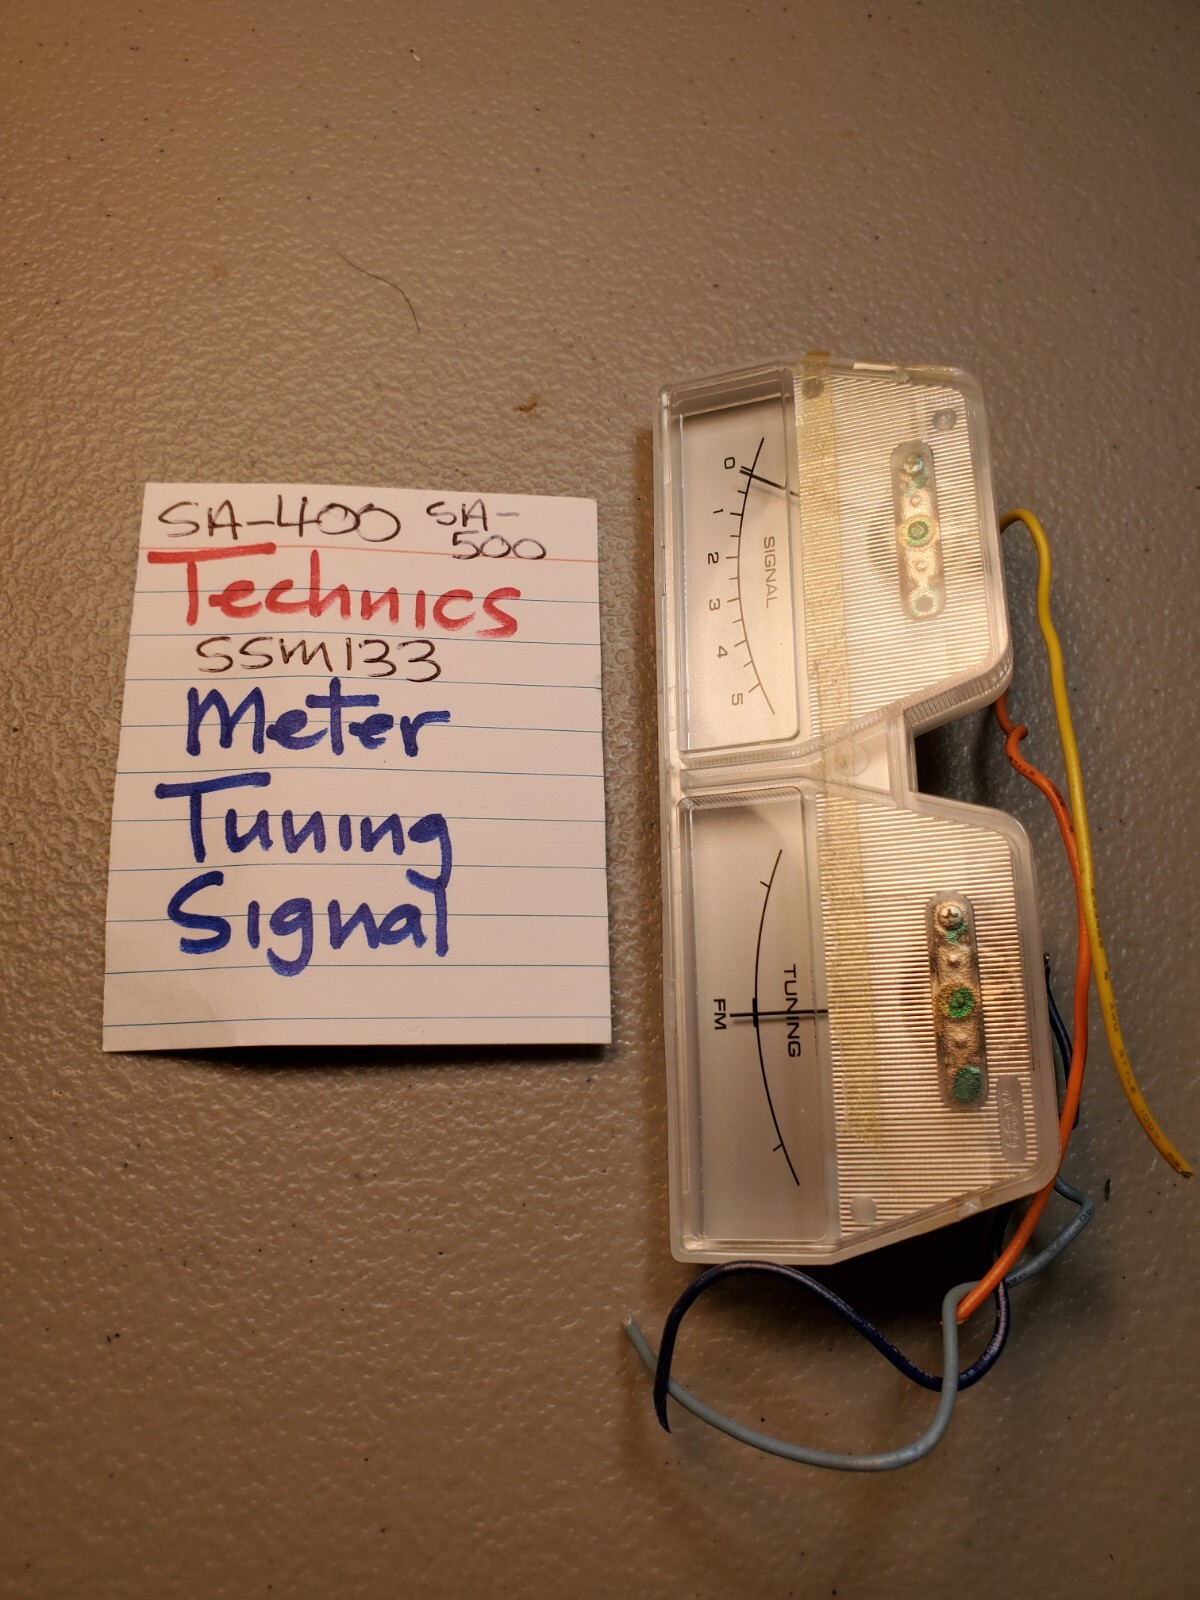 SA-400 SA-
500
Technics
SSM133
Meter
Tuning
Signal
0 1 2 3 4 5
SIGNAL
FM
TUNING